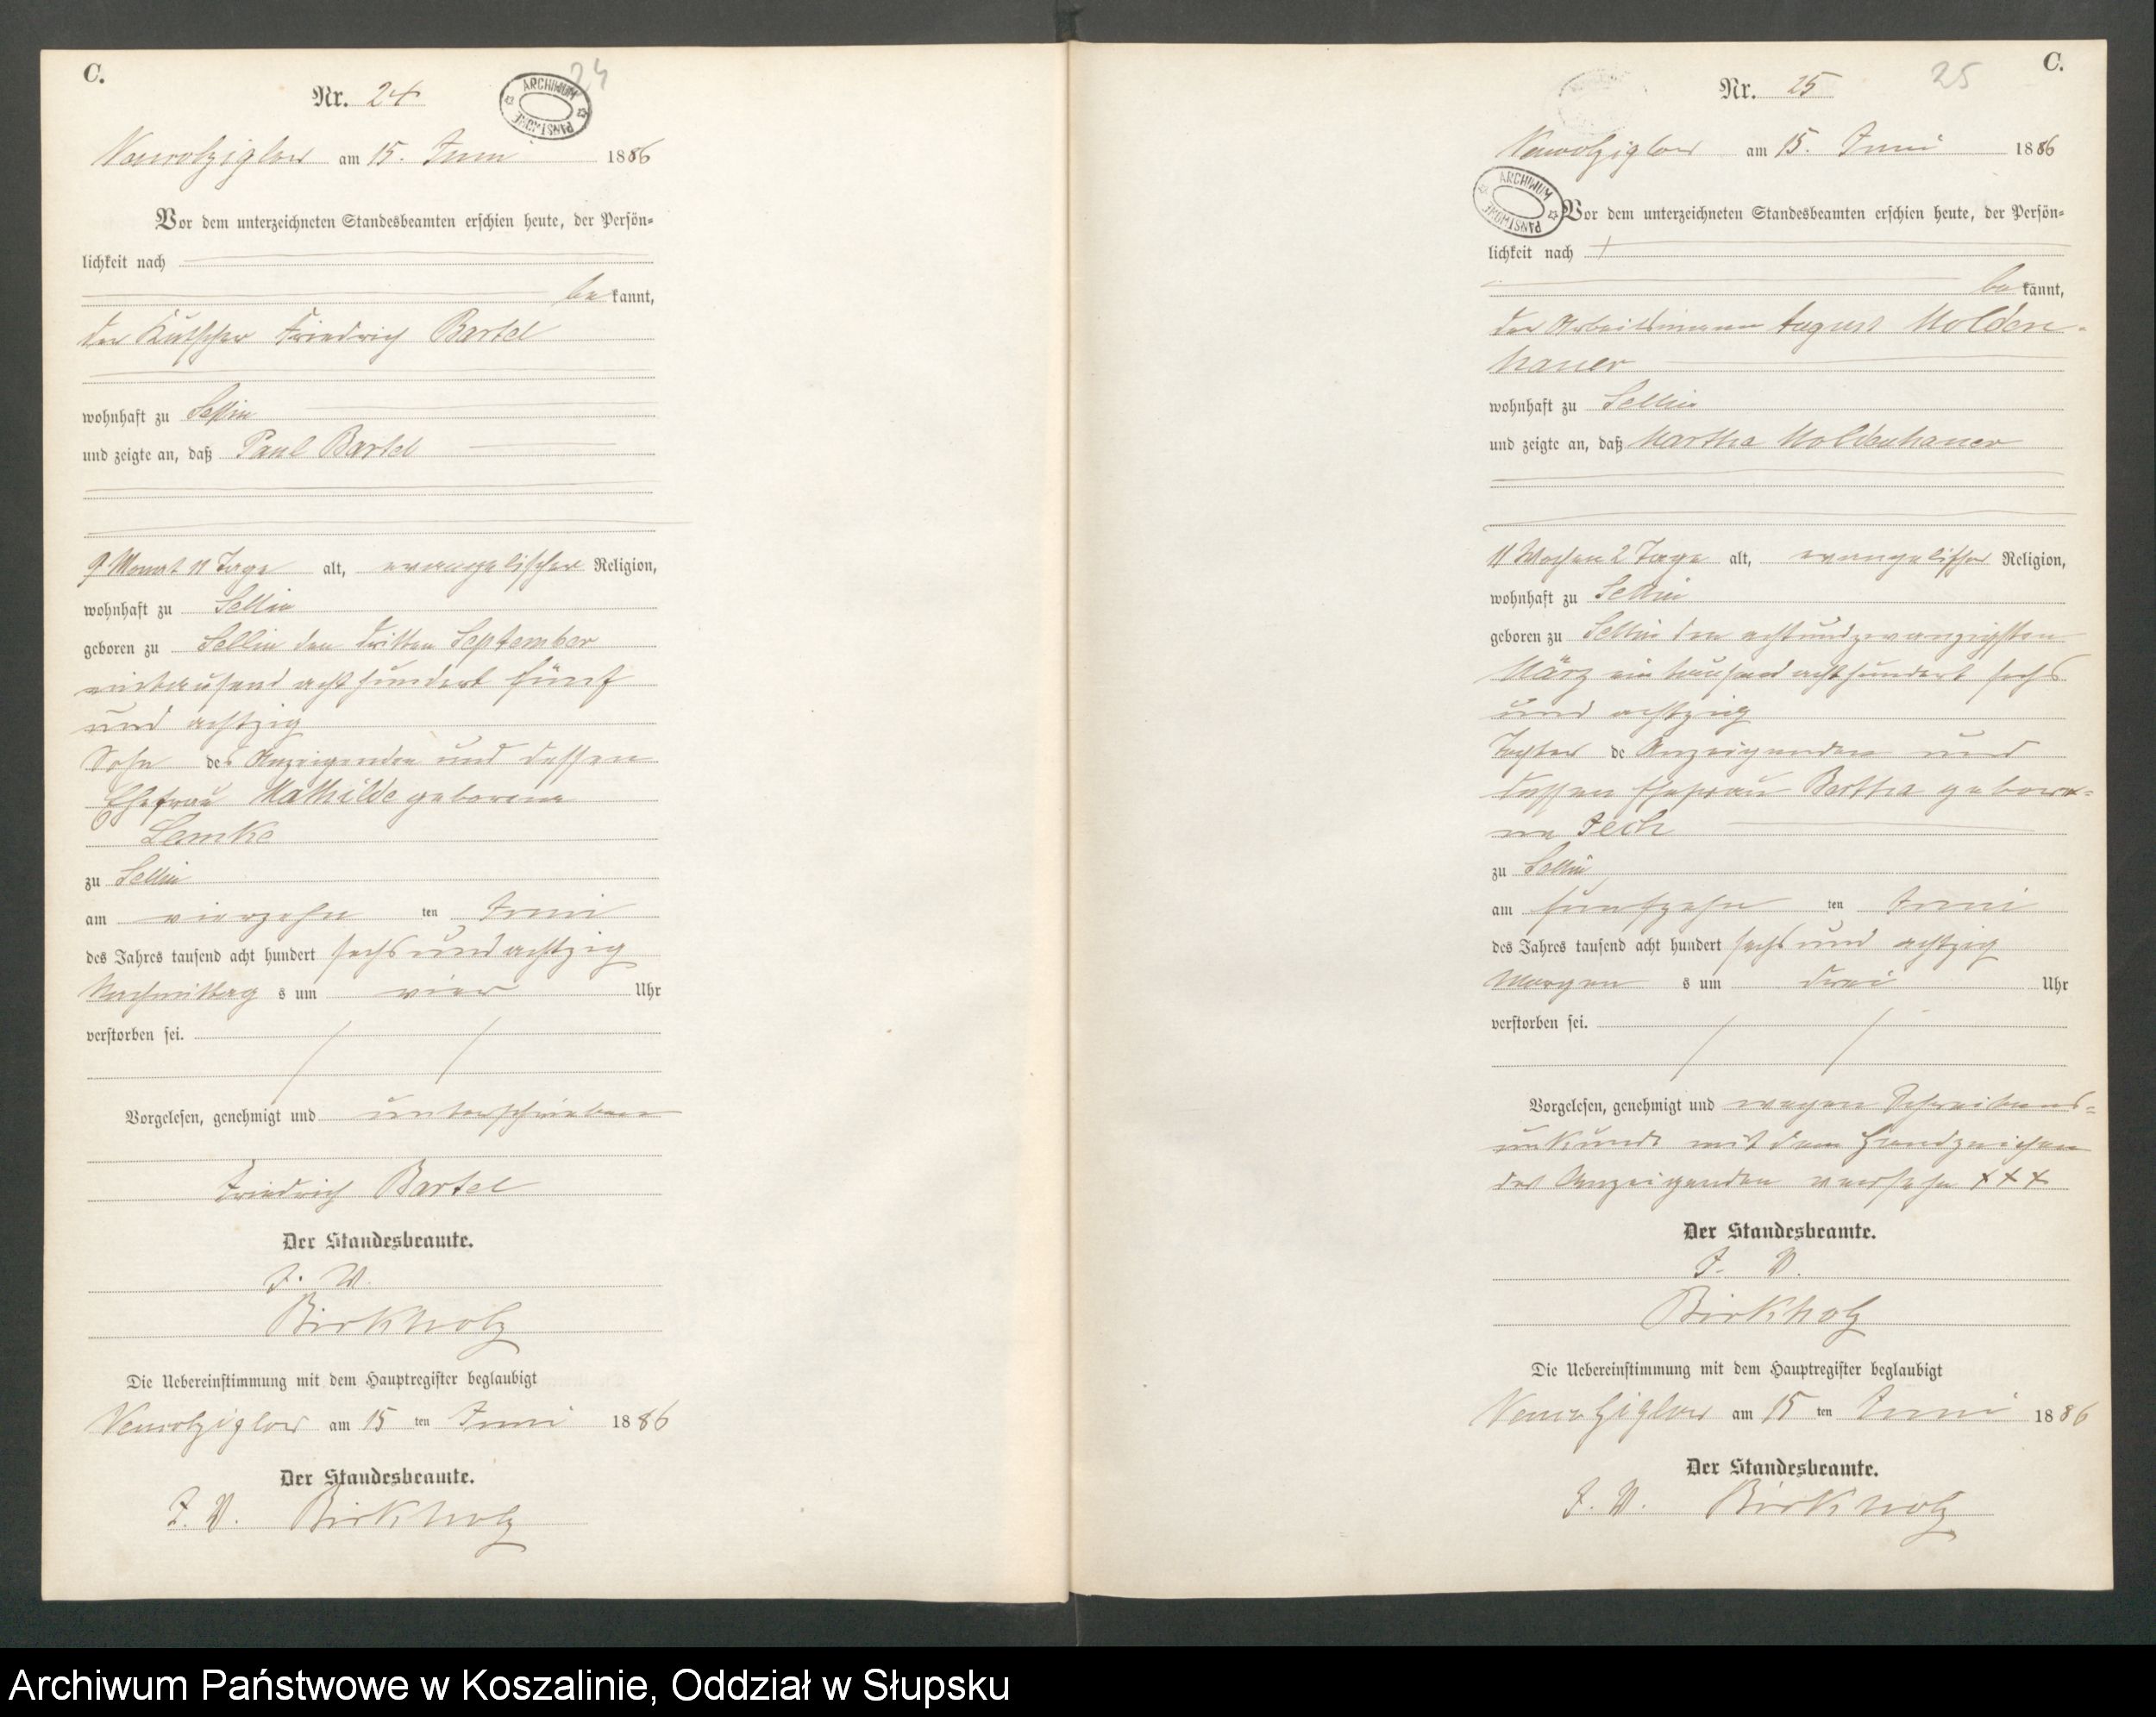 C.
Nr. 24
24
ARCHIWUM PAŃSTWOWE
Neuwolziglow am 15. Juni 1886
Vor dem unterzeichneten Standesbeamten erschien heute, der Persön=
lichkeit nach
bekannt,
der Kutscher Friedrich Bartel
wohnhaft zu Sellin
und zeigte an, daß Paul Bartel
9 Monat 11 Tage alt, evangelischer Religion,
wohnhaft zu Sellin
geboren zu Sellin den dritten September
eintausend acht hundert fünf
und achtzig
Sohn des Anzeigenden und dessen
Ehefrau Mathilde geborene
Lemke
zu Sellin
am vierzehn ten Juni
des Jahres tausend acht hundert sechs und achtzig
Nachmittags um vier Uhr
verstorben sei.
Vorgelesen, genehmigt und unterschrieben
Friedrich Bartel
Der Standesbeamte.
J. V.
Birkholz
Die Uebereinstimmung mit dem Hauptregister beglaubigt
Neuwolziglow am 15 ten Juni 1886
Der Standesbeamte.
J. V. Birkholz
C.
Nr. 25
25
Neuwolziglow am 15. Juni 1886
ARCHIWUM PAŃSTWOWE
Vor dem unterzeichneten Standesbeamten erschien heute, der Persön=
lichkeit nach
bekannt,
der Arbeitsmann August Molden=
hauer
wohnhaft zu Sellin
und zeigte an, daß Martha Moldenhauer
11 Wochen 2 Tage alt, evangelischer Religion,
wohnhaft zu Sellin
geboren zu Sellin den achtundzwanzigsten
März ein tausend acht hundert sechs
und achtzig
Tochter de Anzeigenden und
dessen Ehefrau Bertha gebore=
ne Zech
zu Sellin
am fünfzehn ten Juni
des Jahres tausend acht hundert sechs und achtzig
Morgens um drei Uhr
verstorben sei.
Vorgelesen, genehmigt und wegen Schreibens=
unkunde mit dem Handzeichen
des Anzeigenden versehn +++
Der Standesbeamte.
J. V.
Birkholz
Die Uebereinstimmung mit dem Hauptregister beglaubigt
Neuwolziglow am 15 ten Juni 1886
Der Standesbeamte.
J. V. Birkholz
Archiwum Państwowe w Koszalinie, Oddział w Słupsku